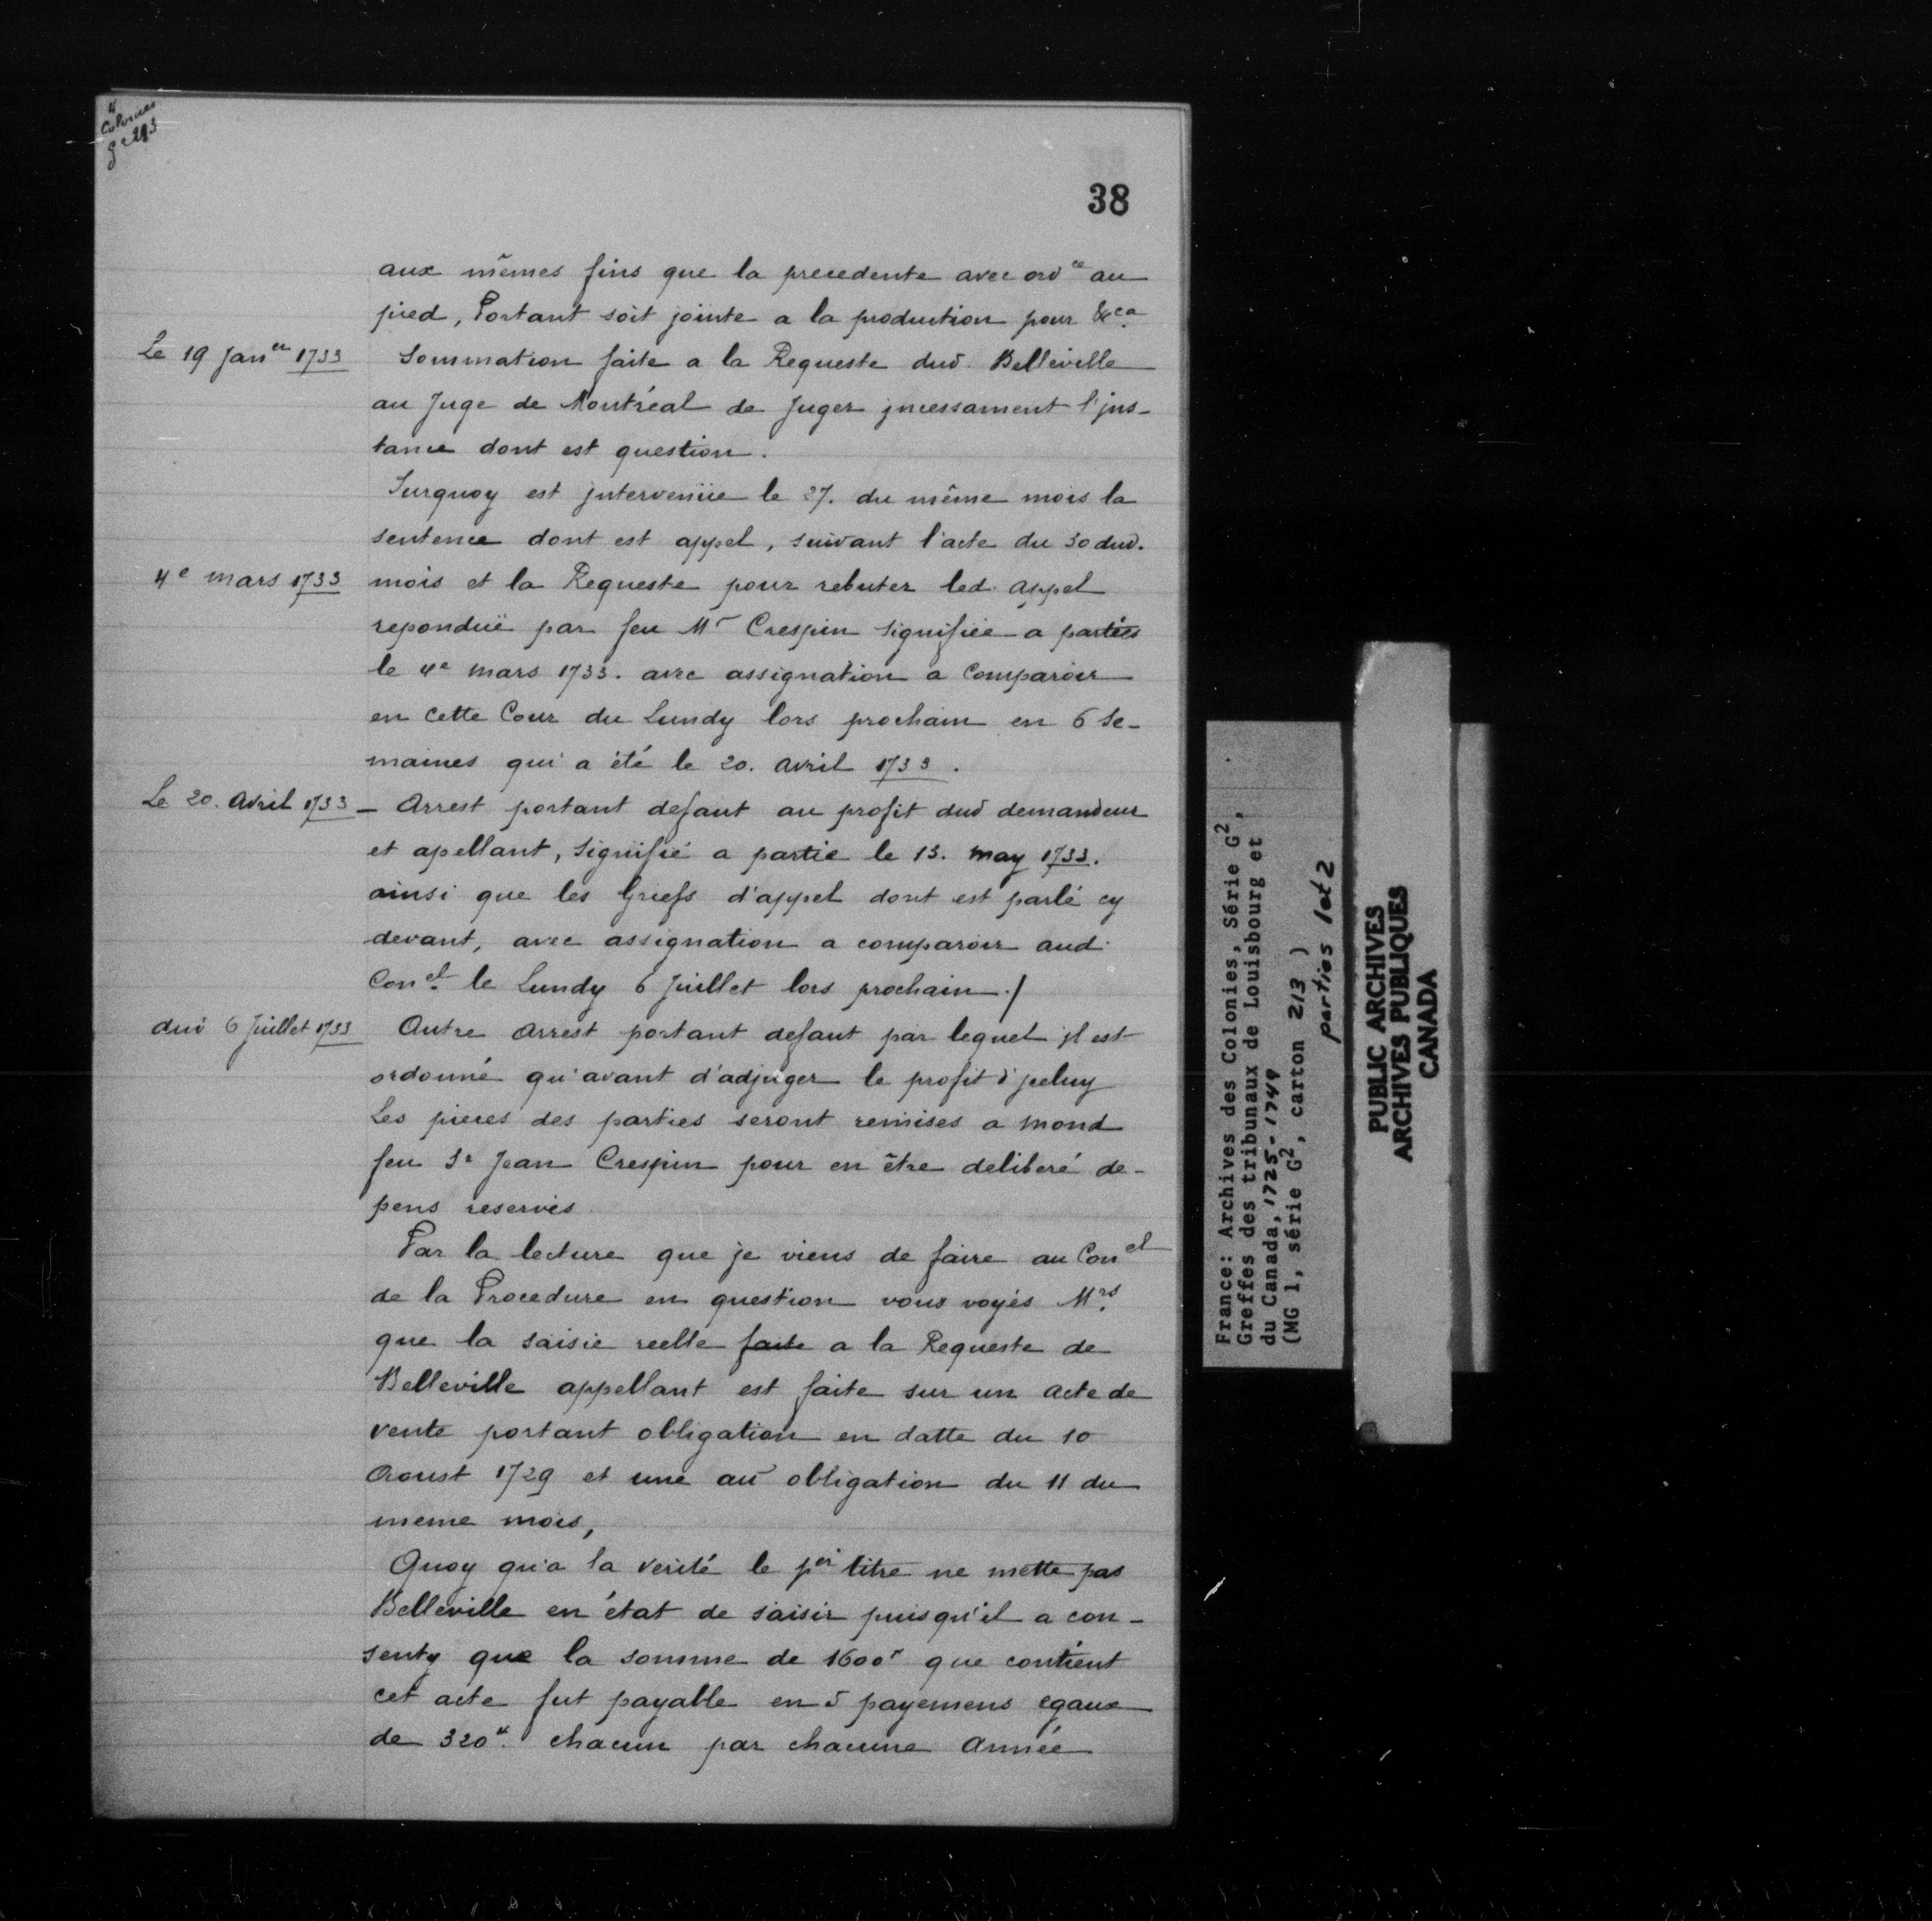 Colonies
G² 213
38
aux mêmes fins que la precedente avec ordce au
pied, Portant soit jointe a la production pour &ca
Le 19 janer 1733
Sommation faite a la Requeste dud. Belleville
au Juge de Montréal de Juger jncessament l'jns-
tance dont est question.
Surquoy est jntervenüe le 27. du même mois la
sentence dont est appel, suivant l'acte du 30 dud.
4e mars 1733
mois et la Requeste pour rebuter led. appel
repondüe par feu Mr Crespin signifiée a parties
le 4e mars 1733. avec assignation a Comparoir
en cette Cour du Lundy lors prochain en 6 se-
maines qui a été le 20. avril 1733.
Le 20. Avril 1733 -
Arrest portant defaut au profit dud demandeur
et apellant, signifié a partie le 13. may 1733.
ainsi que les Griefs d'appel dont est parlé cy
devant, avec assignation a comparoir aud.
Conel le Lundy 6 Juillet lors prochain ./
dud 6 Juillet 1733
Autre arrest portant defaut par lequel jl est
ordonné qu'avant d'adjuger le profit d'jceluy
Les pieces des parties seront remises a mond
feu Sr Jean Crespin pour en être deliberé de-
pens reservés
Par la lecture que je viens de faire au Conel
de la Procedure en question vous voyés Mrs.
que la saisie reelle faite a la Requeste de
Belleville appellant est faite sur un acte de
vente portant obligation en datte du 10
Aoust 1729 et une au obligation du 11 du
meme mois,
Quoy qu'a la verité le per titre ne mette pas
Belleville en état de saisir puisqu'il a con-
senty que la somme de 1600 que contient
cet acte fut payable en 5 payemens egaux
de 320. chacun par chacune Année
France: Archives des Colonies, Série G2,
Greffes des tribunaux de Louisbourg et
du Canada, 1725-1749
(MG 1, série G2, carton 213 )
parties 1 et 2
PUBLIC ARCHIVES
ARCHIVES PUBLIQUES
CANADA